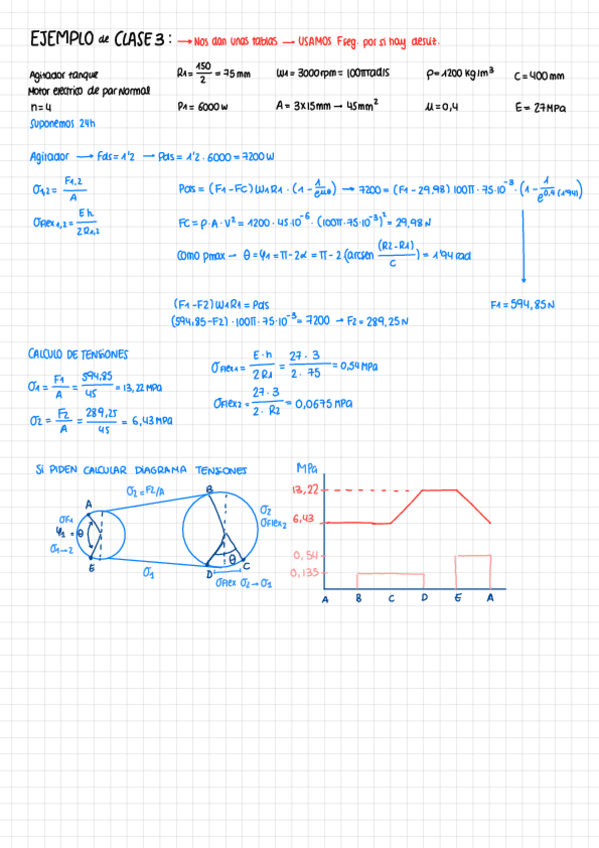 EJEMPLO de CLASE 3: → Nos dan unas tablas → USAMOS Fseg. por si hay desliz.
Agitador tanque
Motor eléctrico de par Normal
n=4
Suponemos 24h
R1 = 150/2 = 75 mm
W1 = 3000 rpm = 100π rad/s
ρ = 1200 kg/m³
C = 400 mm
P1 = 6000 W
A = 3x15mm → 45mm²
μ = 0,4
E = 27 MPa
Agitador → Fds = 1'2 → Pds = 1'2 · 6000 = 7200 W
σ1,2 = F1,2/A
Pds = (F1-FC) W1R1 · (1 - 1/e^μθ) → 7200 = (F1 - 29,98) 100π · 75·10⁻³ · (1 - 1/e^0,4(1'94))
σflex1,2 = Eh/2R1,2
FC = ρ·A·V² = 1200 · 45·10⁻⁶ · (100π·75·10⁻³)² = 29,98 N
Como pmax → θ = φ1 = π-2α = π - 2 (arcsen (R2-R1)/C) = 1'94 rad
(F1-F2) W1R1 = Pds
F1 = 594,85 N
(594,85-F2) · 100π · 75·10⁻³ = 7200 → F2 = 289,25 N
CALCULO DE TENSIONES
σ1 = F1/A = 594,85/45 = 13,22 MPa
σ2 = F2/A = 289,25/45 = 6,43 MPa
σflex1 = E·h/2R1 = 27·3/2·75 = 0,54 MPa
σflex2 = 27·3/2·R2 = 0,0675 MPa
SI PIDEN CALCULAR DIAGRAMA TENSIONES
σ2 = F2/A
A
B
σF1
φ1 = θ
σ1→2
E
σ1
σ2
σflex2
θ
D
C
σflex σ2→σ1
MPa
13,22
6,43
0,54
0,135
A B C D E A